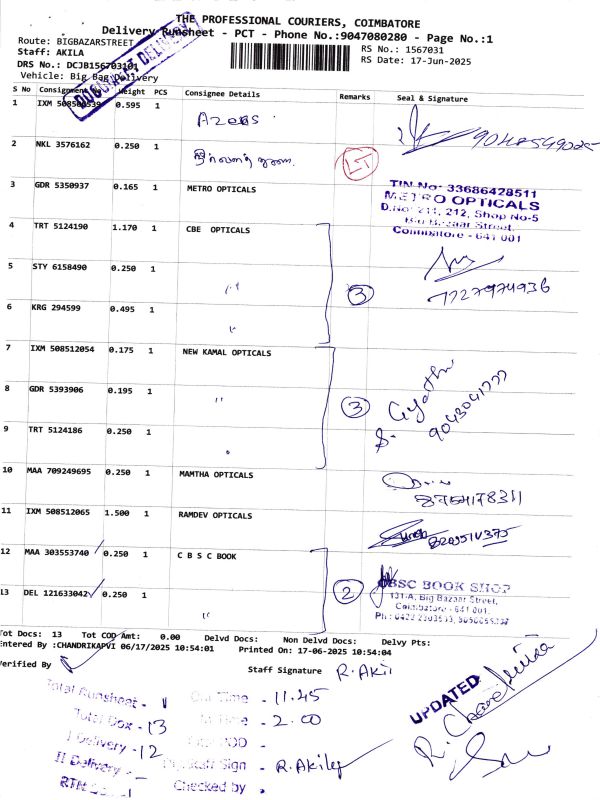 THE PROFESSIONAL COURIERS, COIMBATORE
Delivery Runsheet - PCT - Phone No.:9047080280 - Page No.:1
Route: BIGBAZARSTREET
RS No.: 1567031
Staff: AKILA
RS Date: 17-Jun-2025
DRS No.: DCJB15670310
Vehicle: Big Bag Delivery
DOCUMENT DELIVERY
S No Consignment Weight PCS Consignee Details Remarks Seal & Signature
1 IXM 508500539 0.595 1
2 NKL 3576162 0.250 1 LT
3 GDR 5350937 0.165 1 METRO OPTICALS
TIN No: 33686428511
METRO OPTICALS
D.No: 211, 212, Shop No-5
Big Bazaar Street,
Coimbatore - 641 001
4 TRT 5124190 1.170 1 CBE OPTICALS
5 STY 6158490 0.250 1 " 3
7227974936
6 KRG 294599 0.495 1 "
7 IXM 508512054 0.175 1 NEW KAMAL OPTICALS
8 GDR 5393906 0.195 1 " 3
9043041777
9 TRT 5124186 0.250 1 "
10 MAA 709249695 0.250 1 MAMTHA OPTICALS
11 IXM 508512065 1.500 1 RAMDEV OPTICALS
12 MAA 303553740 0.250 1 C B S C BOOK
13 DEL 121633042 0.250 1 " 2
CBSC BOOK SHOP
131-A, Big Bazaar Street,
Coimbatore - 641 001.
Tot Docs: 13 Tot COD Amt: 0.00 Delvd Docs: Non Delvd Docs: Delvy Pts:
Entered By :CHANDRIKAPVI 06/17/2025 10:54:01 Printed On: 17-06-2025 10:54:04
Verified By
Staff Signature R. Akil
Total Runsheet - 1 Out Time - 11.45
Total Dox - 13 In Time - 2.00
I Delivery - 12 POD -
II Delivery - Sign - R. Akila
RTN - 1 Checked by -
UPDATED